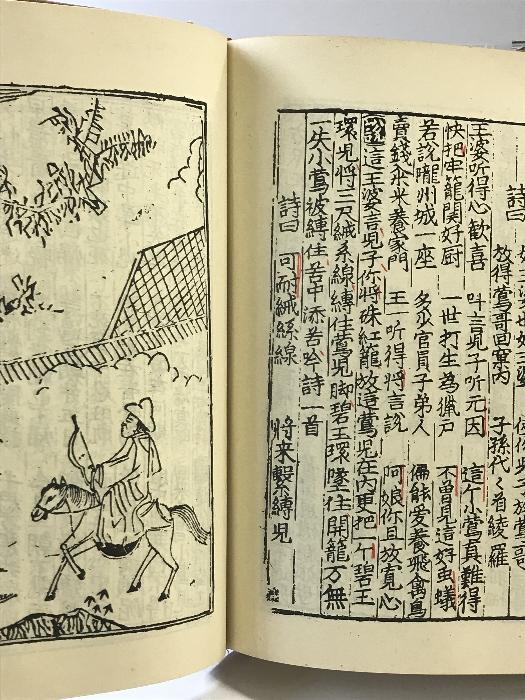 詩曰
放得鶯哥回窠內 子孫代〻着綾羅
王婆听得心歡喜 叫言兒子听元因 這个小鶯真難得
快把牢籠関好厨 一世打生為獵户 不曽見這好虫蟻
若說隴州城一座 多少官員子弟人 偏能爱養飛禽鳥
賣錢籴米養家門 王一听得將言說 阿娘你且放寬心
這王婆言兒子你將珠紅籠放這鶯兒在內更把一个碧玉
環兒將三尺絨系線縛住鶯兒脚碧玉環墜住開籠万無
一失小鶯被縛住苦中添苦吟詩一首
詩曰 可耐絨絲線 将来繫縛兒